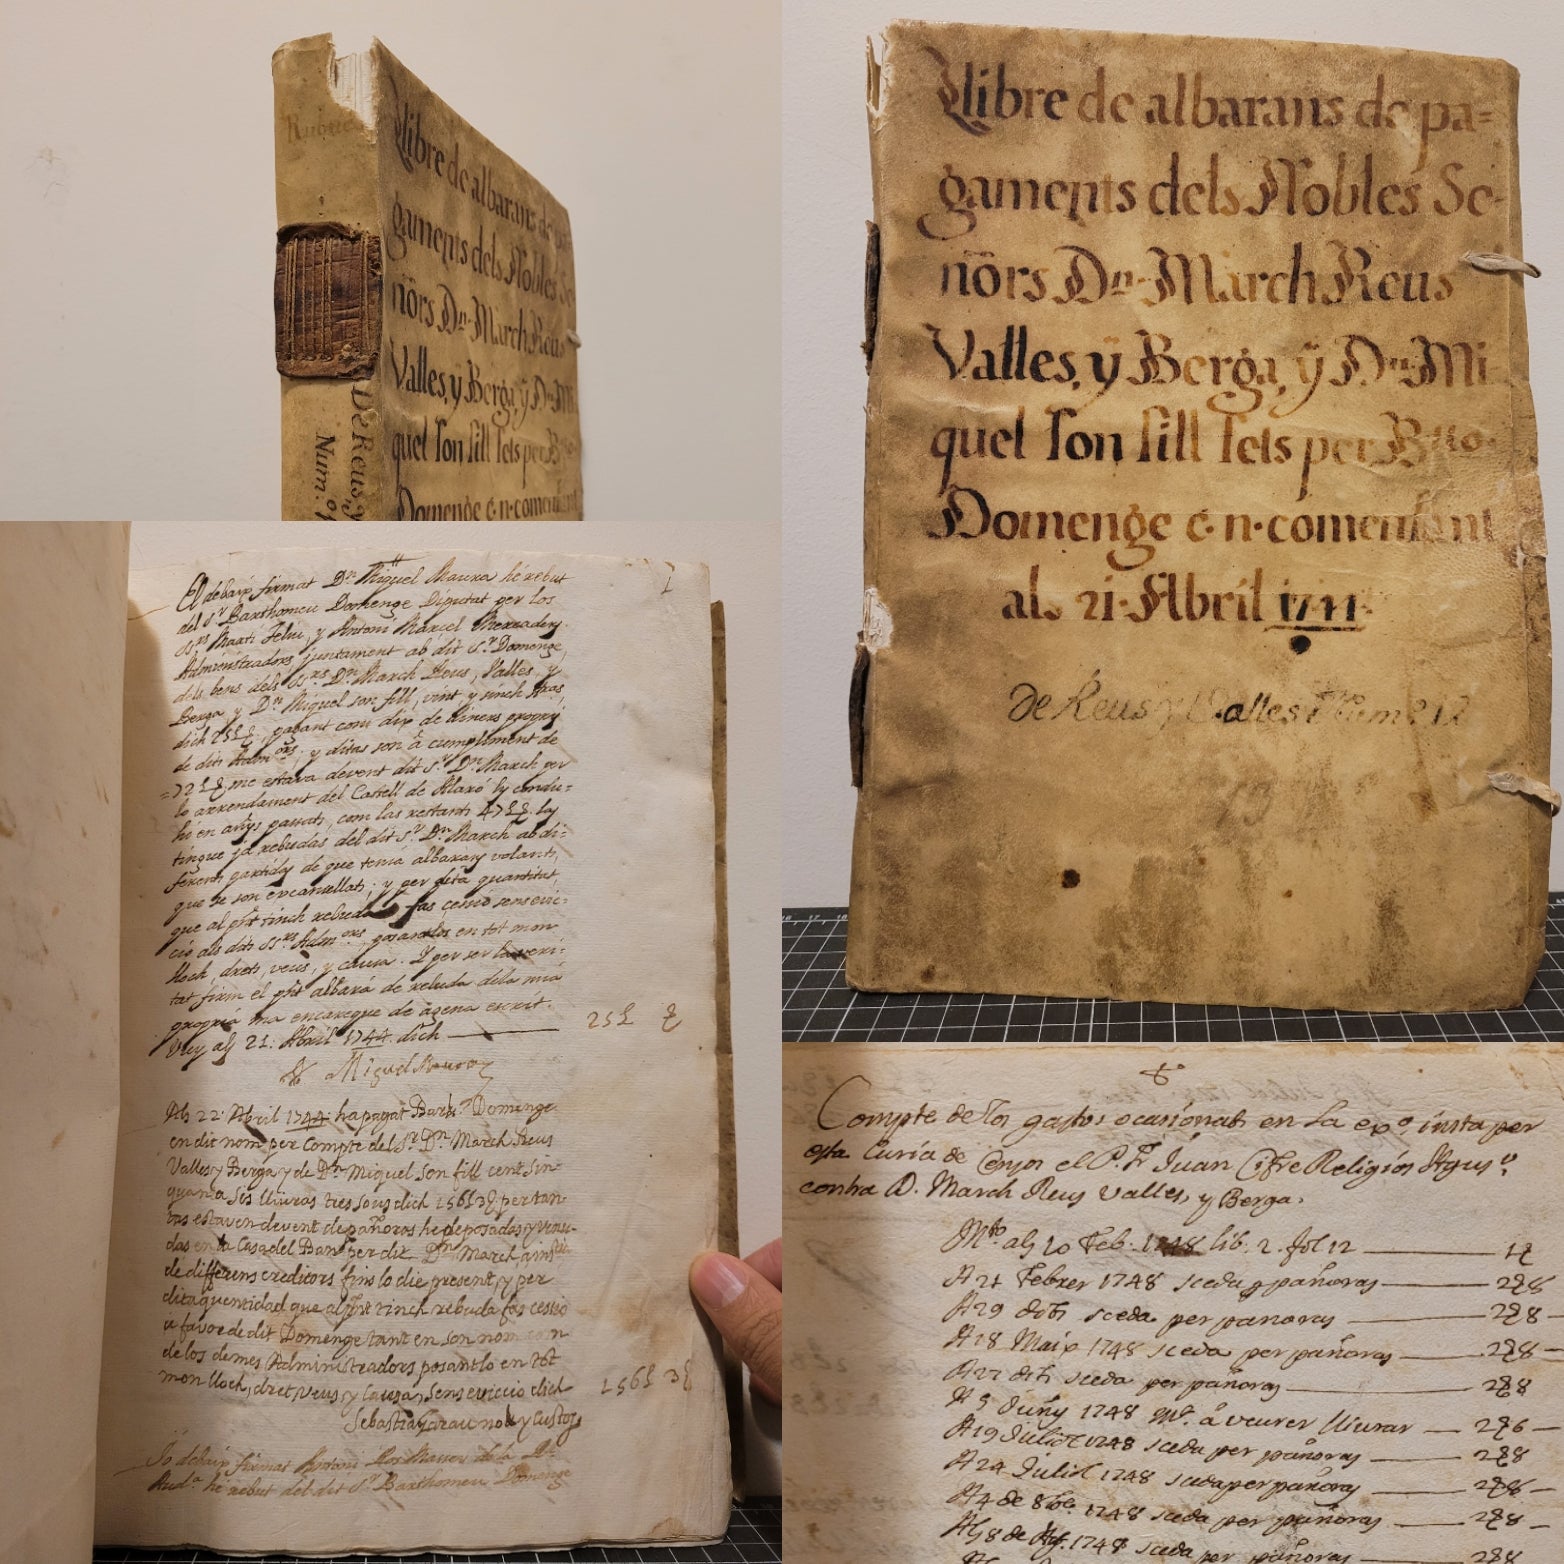 Rubue
De Reus, y
Num.º 1
Llibre de albarans de pa=
gaments dels Nobles Se-
ñors Dn. March Reus
Valles, ÿ Berga, ÿ Dn. Mi
quel son fill fets per Bmo.
Domenge e. n. comensant
als 21 Abril 1744
de Reus y Valles Nume 12
1
El debaix firmat Dn. Miguel Maura hé rebut
del Sr. Barthomeu Domenge Diputat per los
Srs. Marti Feliu, y Antoni Marcel Mercaders
Administradors, juntament ab dit Sr. Domenge,
dels bens dels Srs. Dn. March Reus, Valles y
Berga y Dn. Miguel son fill, vint y sinch lliuras,
dich 25£ pagant com dix de diners propris
de dits Admors; y ditas son á cumpliment de
=72£ me estava devent dit Sr. Dn. March per
lo arrendament del Castell de Alaró ly condu=
hi en añys passats, com las restants 47£ las
tingue ja rebudas del dit Sr. Dn. March ab di=
ferents partidas de que tenia albarans volants,
que se son encancellats; y per dita quantitat
que al pnt tinch rebuda fas cessio sens evic=
ció als dits Srs. Admors, posantlos en tot mon
lloch, drets, veus, y causa. Y per ser la veri=
tat firm el pnt albará de rebuda de la mia
propria ma encaregue de agena escrit.
Vuy als 21: Abril 1744. dich 25£
Miguel Maura
Als 22: Abril 1744: ha pagat Barth. Domenge
en dit nom per Compte del Sr. Dn. March Reus
Valles y Berga y de Dn. Miguel son fill cent, sin-
quanta sis lliuras tres sous dich 156£3 per tan-
tas estaven devent de pañoras he deposadas y venu-
das en la Casa del Banc per dit Dn. March a ins-
de differens creditors fins lo die present, y per
dita quentidad que al pnt tinch rebuda fas cessio
a favor de dit Domenge tant en son nom com
de los demes Administradors posantlo en tot
mon lloch, dret, veus, y Causa, sens eviccio dich 156£ 3
Sebastia Garau not. y Custos
Jo debaix firmat Antoni
hé rebut del dit Sr. Barthomeu Domenge
Compte de los gastos ocasionats en la exo. insta per
esta Curia de Censos el P. Fr. Juan Cifre Religios Agusti.
contra D. March Reus Valles, y Berga.
Mto. als 20 Feb. 1748 lib. 2. fol 12
A 21 Febrer 1748 sceda per pañoras 2 8
A 29 dits sceda per pañoras 2 8
A 18 Maix 1748 sceda per pañoras 2 8
A 27 dits sceda per pañoras 2 8
A 5 Juñy 1748 Mt. a veurer lliurar 2 6
A 19 Juliol 1748 sceda per pañoras 2 8
A 24 Juliol 1748 sceda per pañoras 2 8
A 4 de 8bre 1748 sceda per pañoras 2 8
Als 8 de 1748 sceda per pañoras 2 8